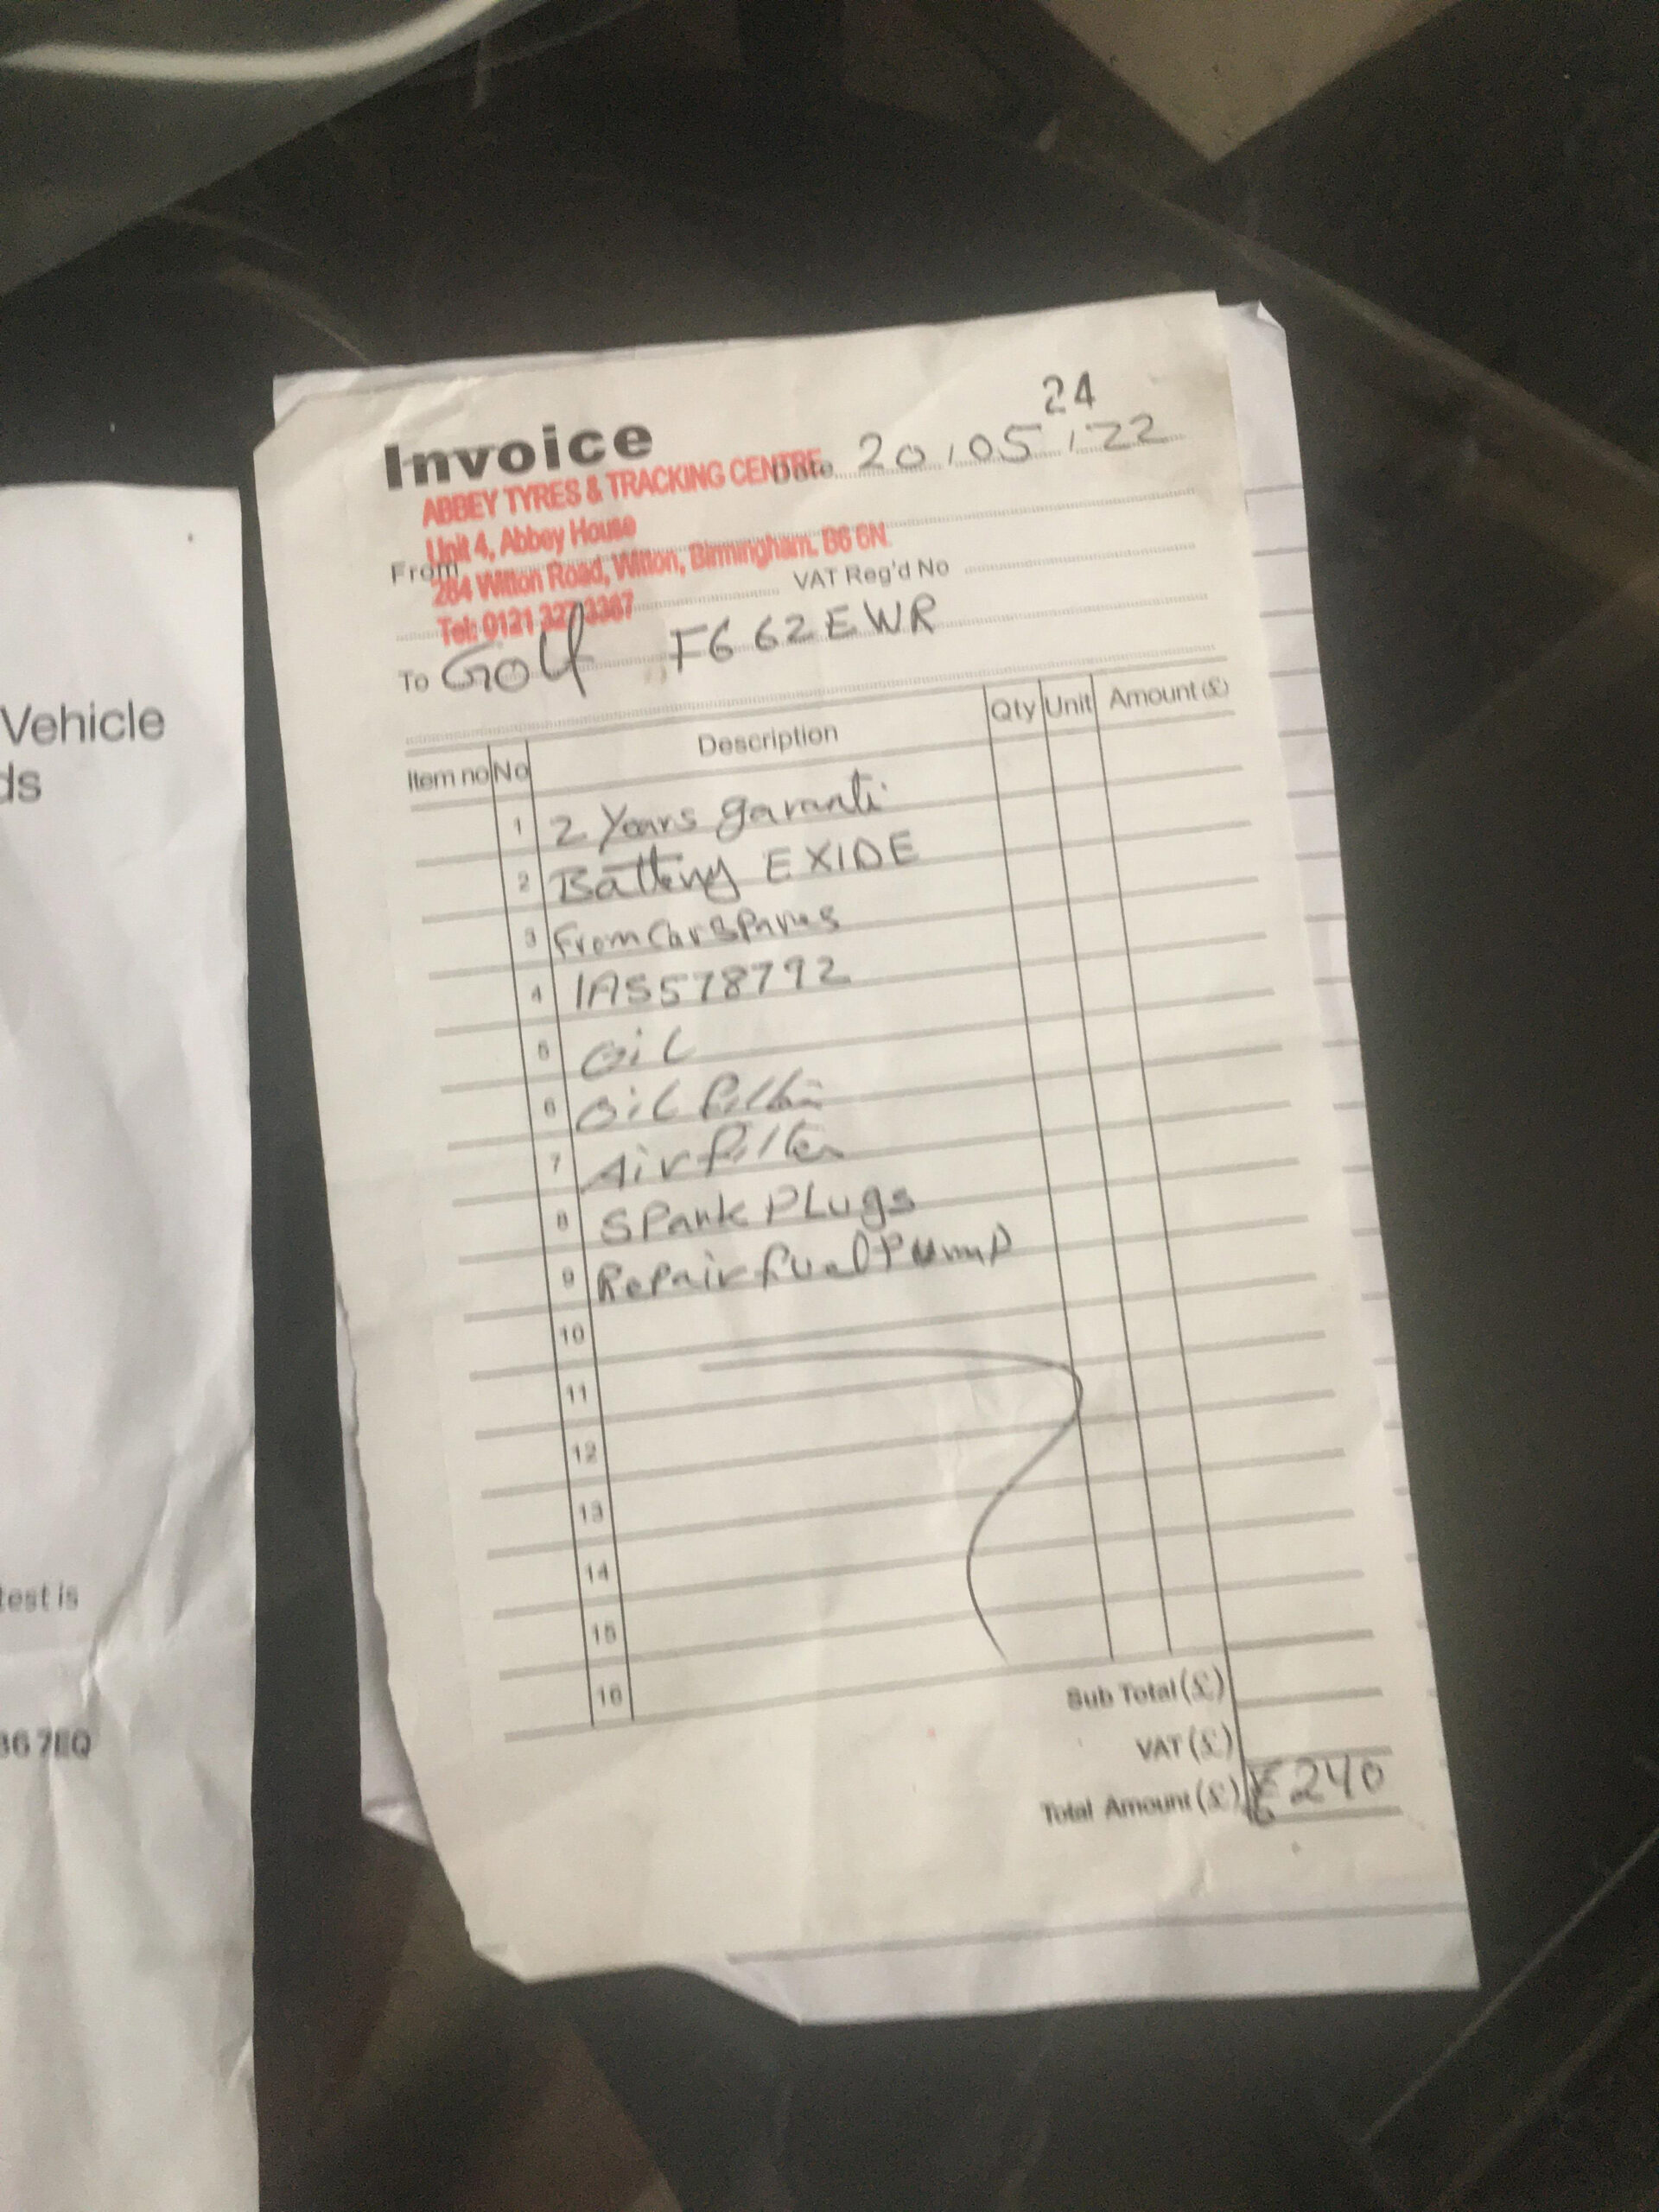 Vehicle
ds
test is
B6 7EQ
Invoice
24
Date 20/05/22
ABBEY TYRES & TRACKING CENTRE
Unit 4, Abbey House
From
264 Witton Road, Witton, Birmingham. B6 6N
VAT Reg'd No
Tel: 0121 327 3387
To Golf F662EWR
Item no No Description Qty Unit Amount (£)
1 2 Years garanti
2 Battery EXIDE
3 From Car Spares
4 1AS578792
5 Oil
6 Oil filter
7 Air filter
8 Spark PLugs
9 Repair fuel Pump
10
11
12
13
14
15
16
Sub Total (£)
VAT (£)
Total Amount (£) £240